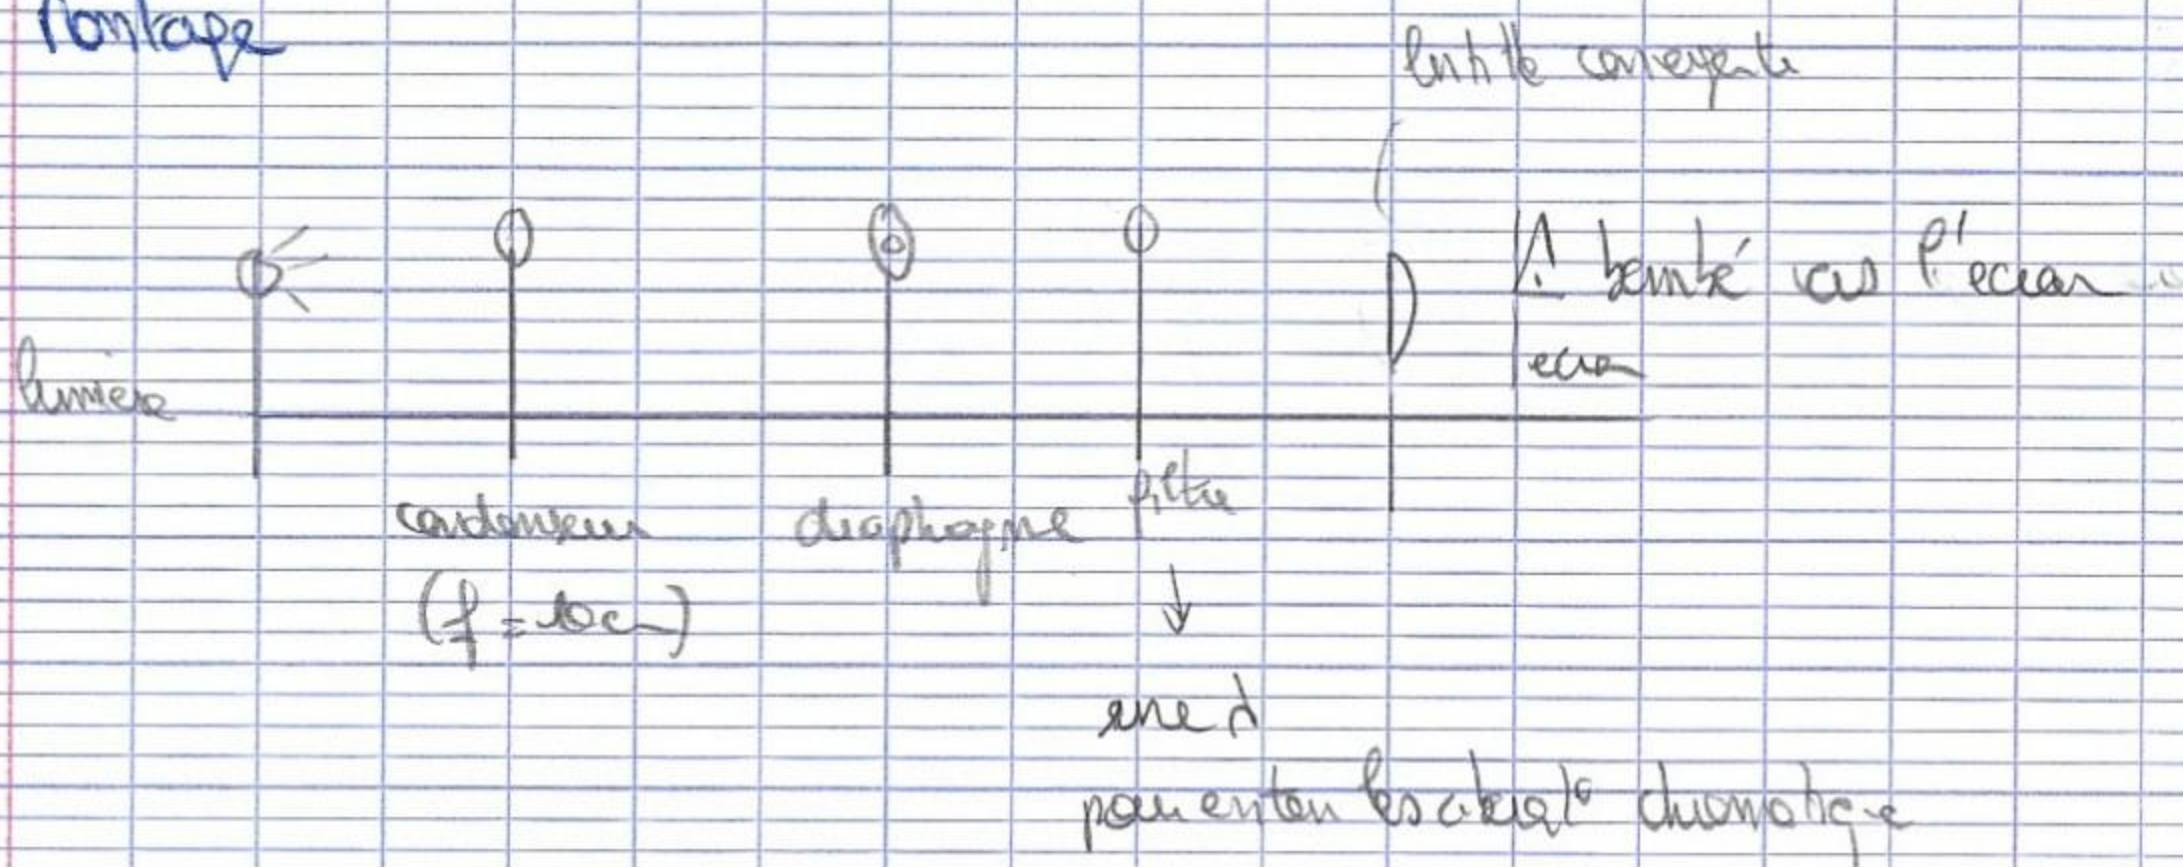 Montage
lentille convergente
⚠ bombé vers l'écran
écran
lumière
condenseur
diaphragme
filtre
(f = 10 cm)
↓
une λ
pour eviter les aberrat° chromatique